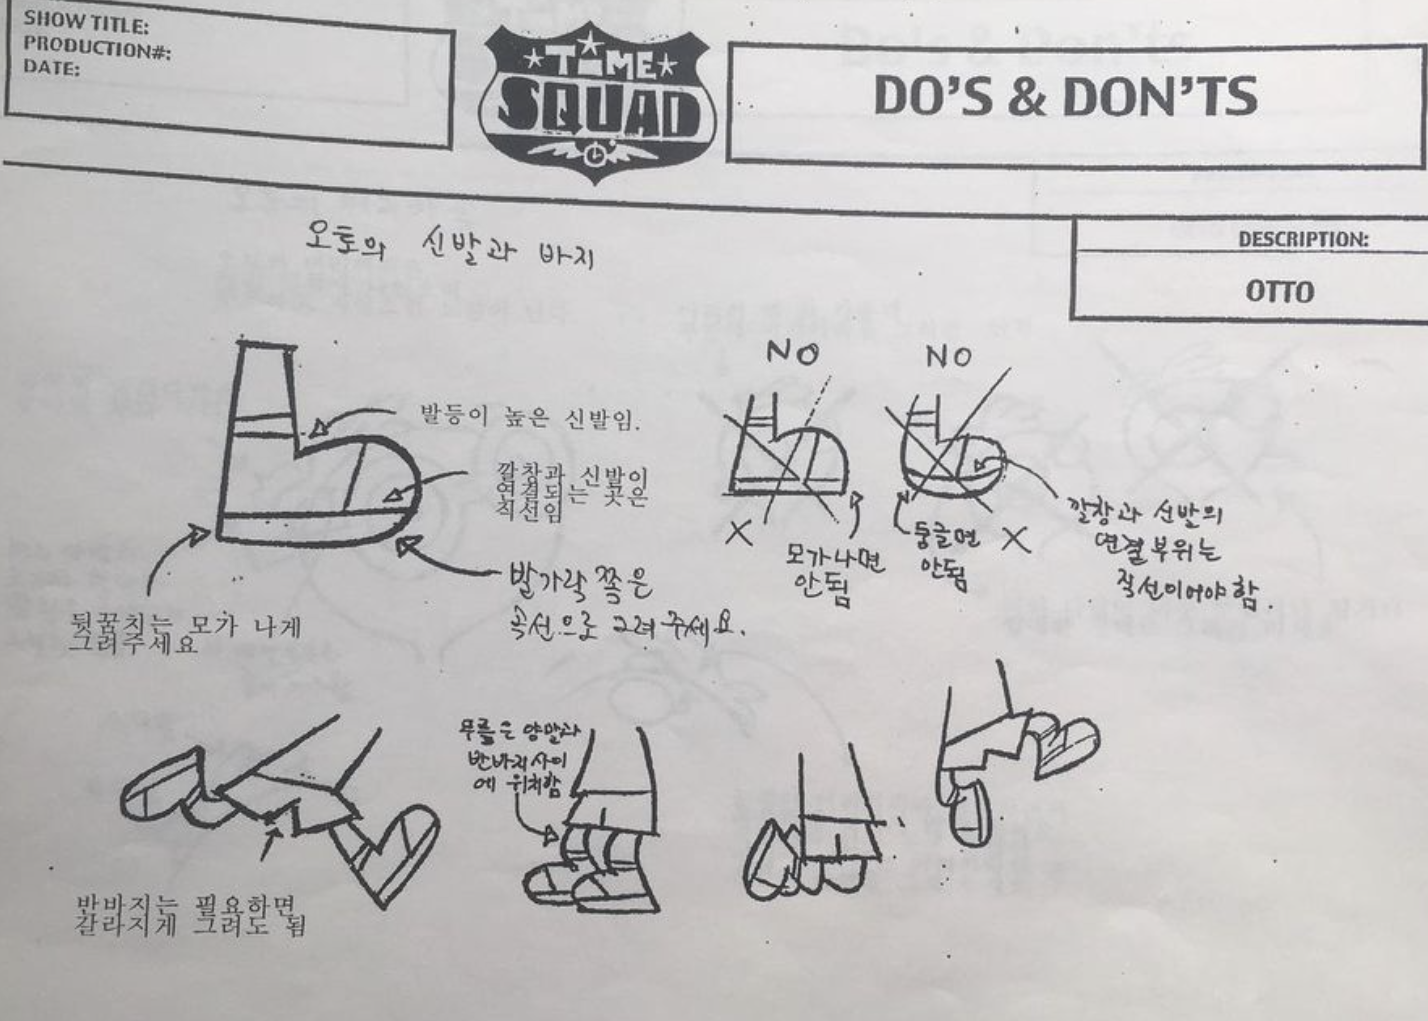 SHOW TITLE:
PRODUCTION#:
DATE:
TIME
SQUAD
DO'S & DON'TS
DESCRIPTION:
OTTO
오토의 신발과 바지
발등이 높은 신발임.
깔창과 신발이
연결되는 곳은
직선임
발가락 쪽은
곡선으로 그려 주세요.
뒷꿈치는 모가 나게
그려주세요
NO
NO
X
모가나면
안됨
둥글면
안됨
X
깔창과 신발의
연결부위는
직선이어야 함.
무릎은 양말과
반바지 사이
에 위치함
반바지는 필요하면
갈라지게 그려도 됨